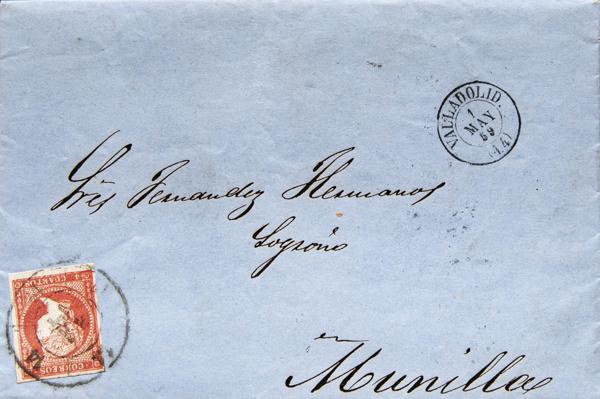 VALLADOLID.
1
MAY
59
(14)
Sres Fernandez Hermanos
Logroño
en
Munilla
CORREOS
4 CUARTOS